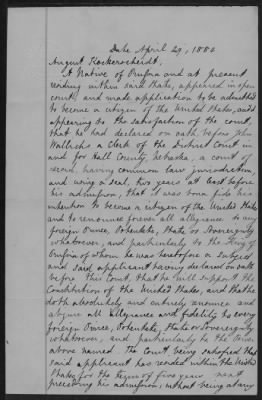 Date April 29, 1884
August
A Native of Prussia and at present
residing within said State, appeared in open
court, and made application to be admitted
to become a citizen of the United States, and it
appearing to the satisfaction of the court,
that he had declared on oath before John
Wallichs a Clerk of the District Court in
and for Hall County, Nebraska, a court of
record, having common law jurisdiction,
and using a seal, two years at least before
his admission, that it was bona fide his
intention to become a citizen of the United States
and to renounce forever all allegiance to any
foreign Prince, Potentate, State or Sovereignty
whatsoever, and particularly to the King of
Prussia of whom he was heretofore a subject
and said applicant having declared on oath
before this Court, that he will support the
Constitution of the United States, and that he
doth absolutely and entirely renounce and
abjure all allegiance and fidelity to every
foreign Prince, Potentate, State or Sovereignty
whatsoever, and particularly to the
above named. The Court being satisfied that
said applicant has resided within the United
States for the term of five years next
preceding his admission, without being at any